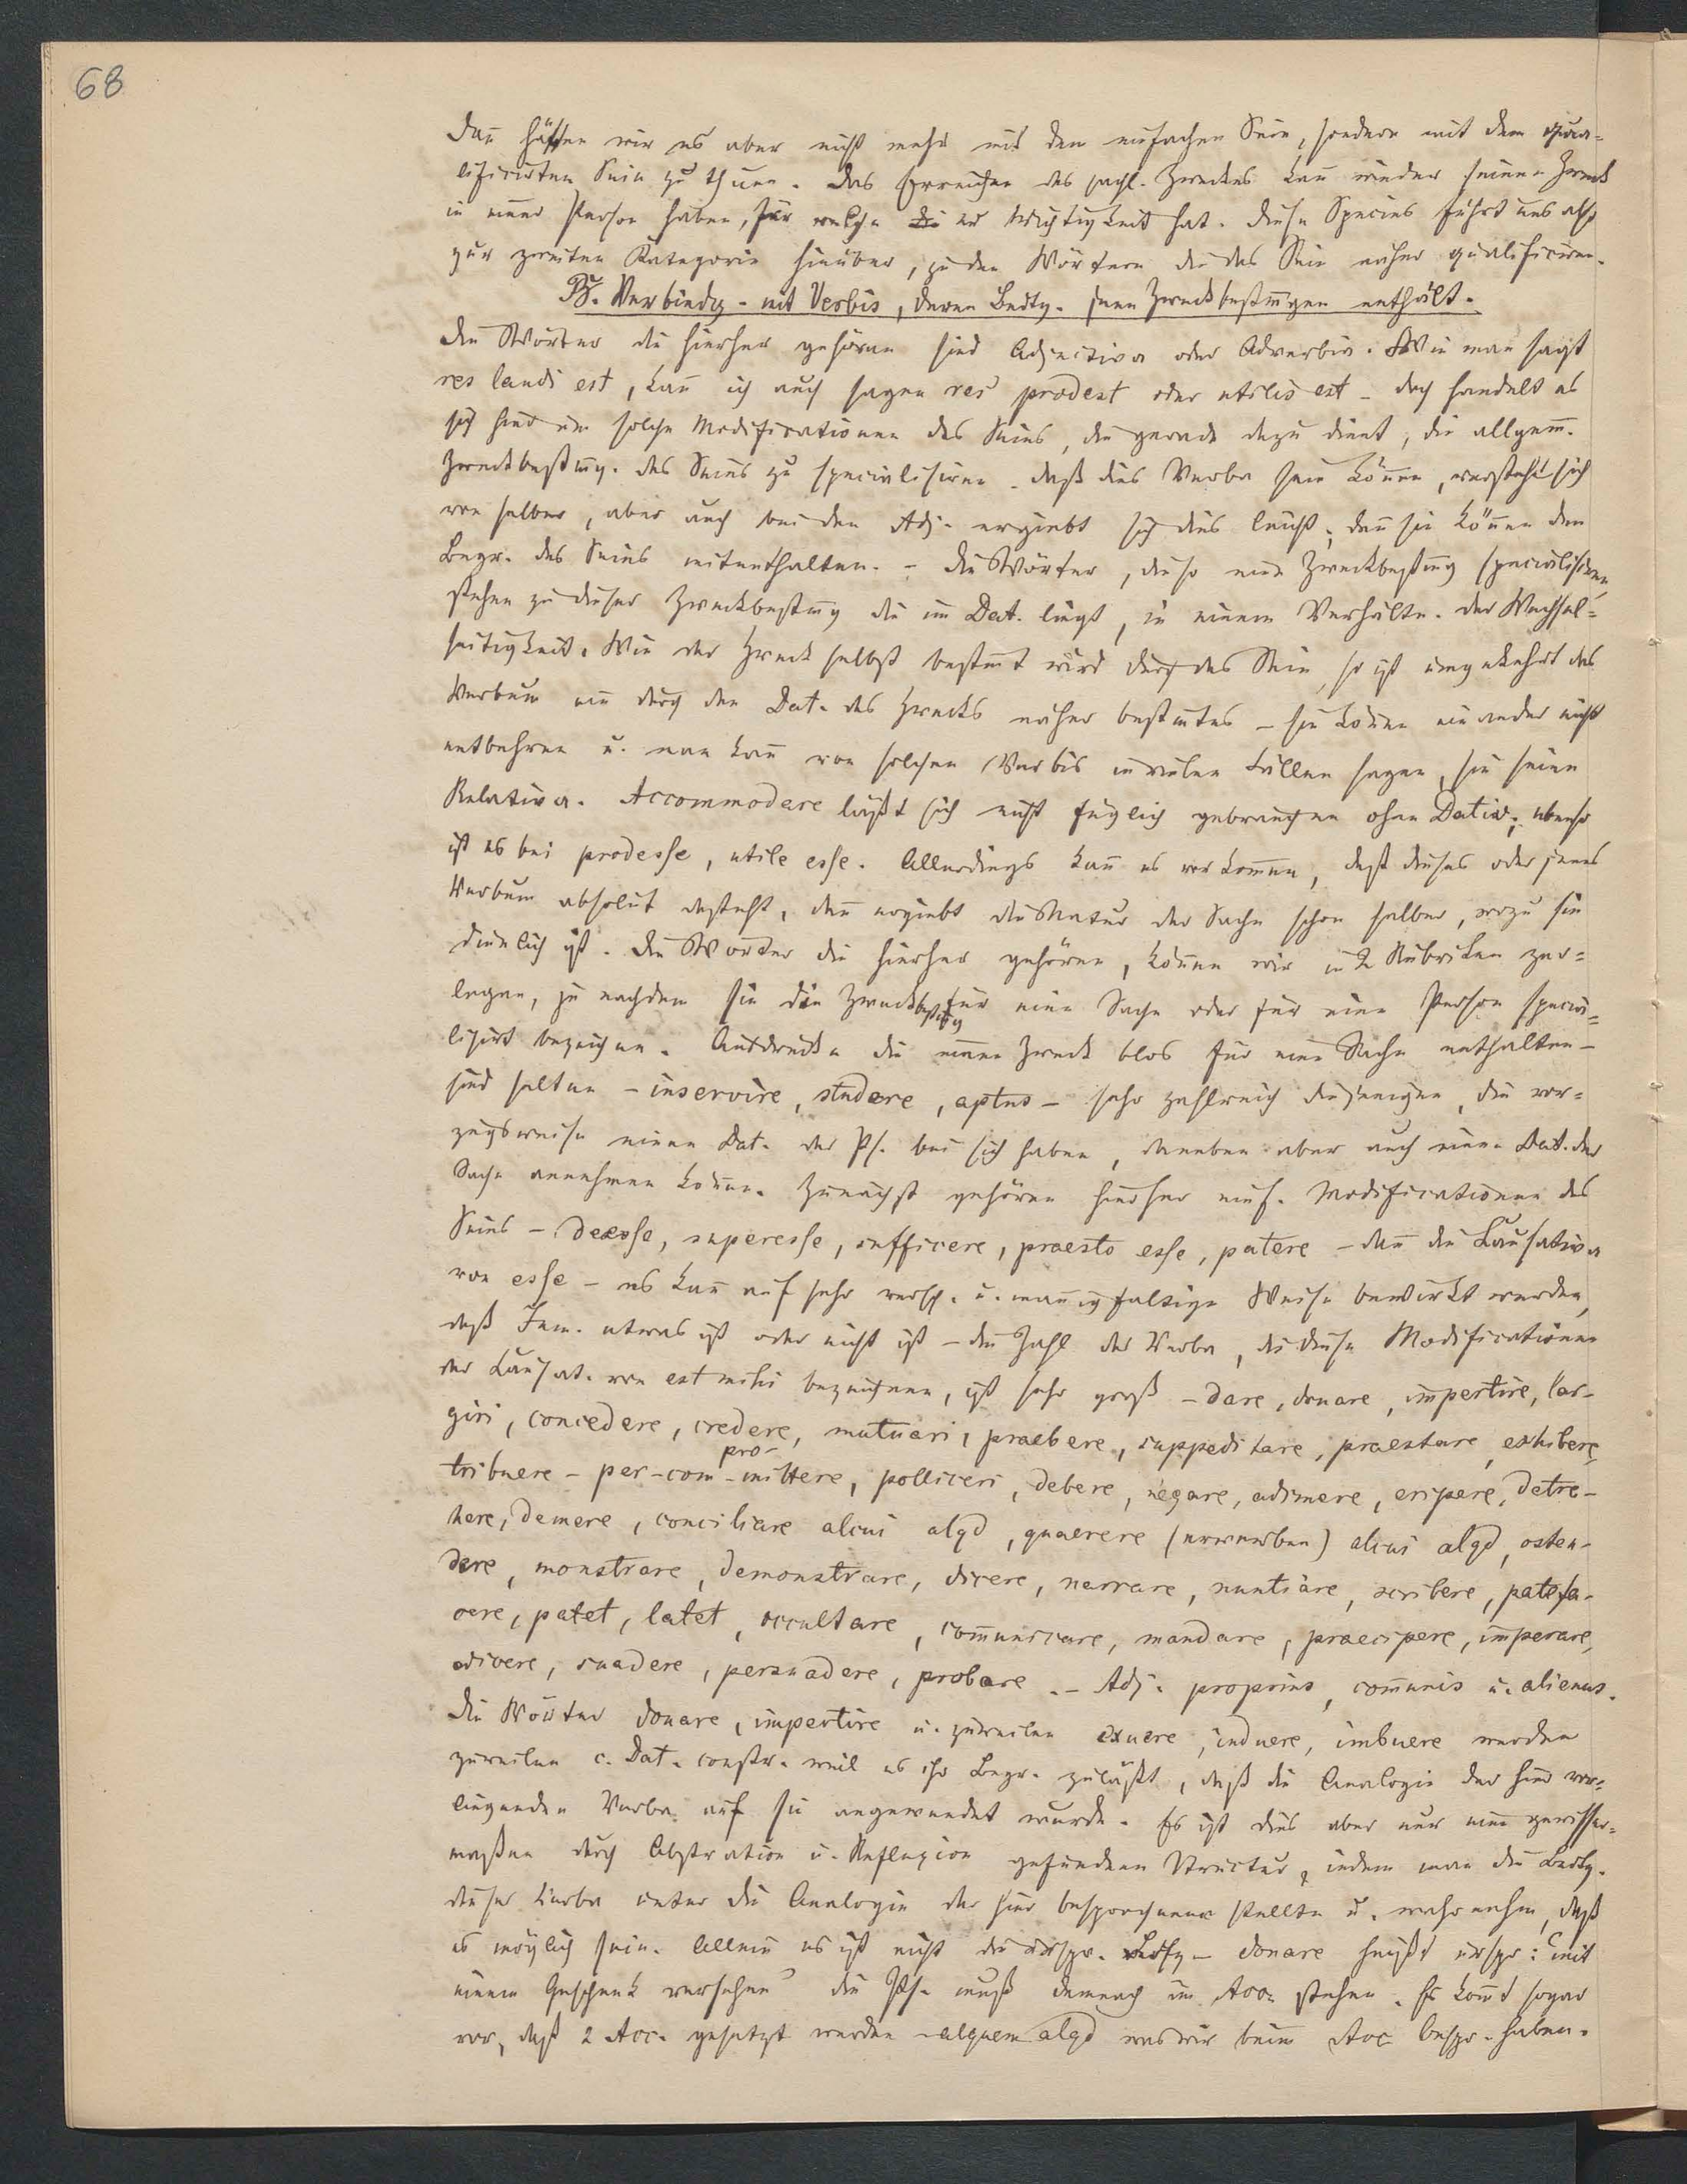 68
Dañ hätten wir es aber nicht mehr mit dem einfachen Sein, sondern mit dem qua-
lificirten Sein zu thuen. Das Erreichen des sachl. Zweckes kañ wieder seinen Zweck
in einer Person haben, für welche er Wichtigkeit hat. Diese Species führt uns also
zur zweiten Kategorie hinüber, zu den Wörtern die das Sein näher qualificiren.
B. Verbindg. mit Verbis, deren Bedtg. jene Zweckbestim̄gen enthält.
Die Wörter die hierher gehören sind Adjectiva oder Adverbia. Wie man sagt
res laudi est, kañ ich auch sagen res prodest oder utilis est - doch handelt es
sich hier um solche Modificationen des Seins, die gerade dazu dient, die allgem̄.
Zweckbestim̄g. des Seins zu specialisiren. Daß dies Verba sein köñen, versteht sich
von selber, aber auch bei den Adj. ergiebt sich dies leicht; deñ sie köñen den
Begr. des Seins mitenthalten. - Die Wörter, die so eine Zweckbestim̄g specialisiren,
stehen zu dieser Zweckbestim̄g die im Dat. liegt, in einem Verhältn. der Wechsel-
seitigkeit. Wie der Zweck selbst bestim̄t wird durch das Sein, so ist umgekehrt das
Verbum ein durch den Dat. des Zwecks näher bestim̄tes - sie köñen einander nicht
entbehren u. man kañ von solchen Verbis in vielen Fällen sagen, sie seien
Relativa. Accommodare läßt sich nicht füglich gebrauchen ohne Dativ; ebenso
ist es bei prodesse, utile esse. Allerdings kañ es vorkom̄en, daß dieses oder jenes
Verbum absolut dasteht, dañ ergiebt die Natur der Sache schon selber, wozu sie
dienlich ist. Die Wörter die hierher gehören, köñen wir in 2 Rubriken zer-
legen, je nachdem sie die Zweckbestim̄g für eine Sache oder für eine Person specia-
lisirt bezeichnen. Ausdrücke die einen Zweck blos für eine Sache enthalten -
sind selten - inservire, studere, aptus - sehr zahlreich diejenigen, die vor-
zugsweise einen Dat. der Ps. bei sich haben, daneben aber auch einen Dat. der
Sache annehmen köñen. Zunächst gehören hierher einf. Modificationen des
Seins - deesse, superesse, sufficere, praesto esse, patere - dañ die Causativa
von esse - es kañ auf sehr versch. u. mañigfaltige Weise bewirkt werden,
daß Jem. etwas ist oder nicht ist - die Zahl der Verba, die diese Modificationen
der Causat. von est mihi bezeichnen, ist sehr groß - dare, donare, impertire, lar-
giri, concedere, credere, mutuari, praebere, suppeditare, praestare, exhibere,
tribuere - per-com-pro-mittere, polliceri, debere, negare, adimere, eripere, detra-
here, demere, conciliare alcui alqd, quaerere (erwerben) alcui alqd, osten-
dere, monstrare, demonstrare, dicere, narrare, nuntiare, scribere, patefa-
cere, patet, latet, occultare, com̄unicare, mandare, praecipere, imperare,
dicere, suadere, persuadere, probare. - Adj. proprius, com̄unis u. alienus.
Die Wörter donare, impertire u. zuweilen exuere, induere, imbuere werden
zuweilen c. Dat. constr. weil es ihr Begr. zuläßt, daß die Analogie der hier vor-
liegenden Verba auf sie angewendet wurde. Es ist dies aber nur eine gewisser-
maßen durch Abstration u. Reflexion gefundene Structur, indem man die Bedtg.
dieser Verba unter die Analogie der hier besprochenen stellte u. wahrnahm, daß
es möglich sein. Allein es ist nicht die urspr. Bedtg - donare heißt urspr: "mit
einem Geschenk versehen" die Ps. muß demnach im Acc. stehen. Es kom̄t sogar
vor, daß 2 Acc. gesetzt werden - alquem alqd was wir beim Acc bespr. haben.